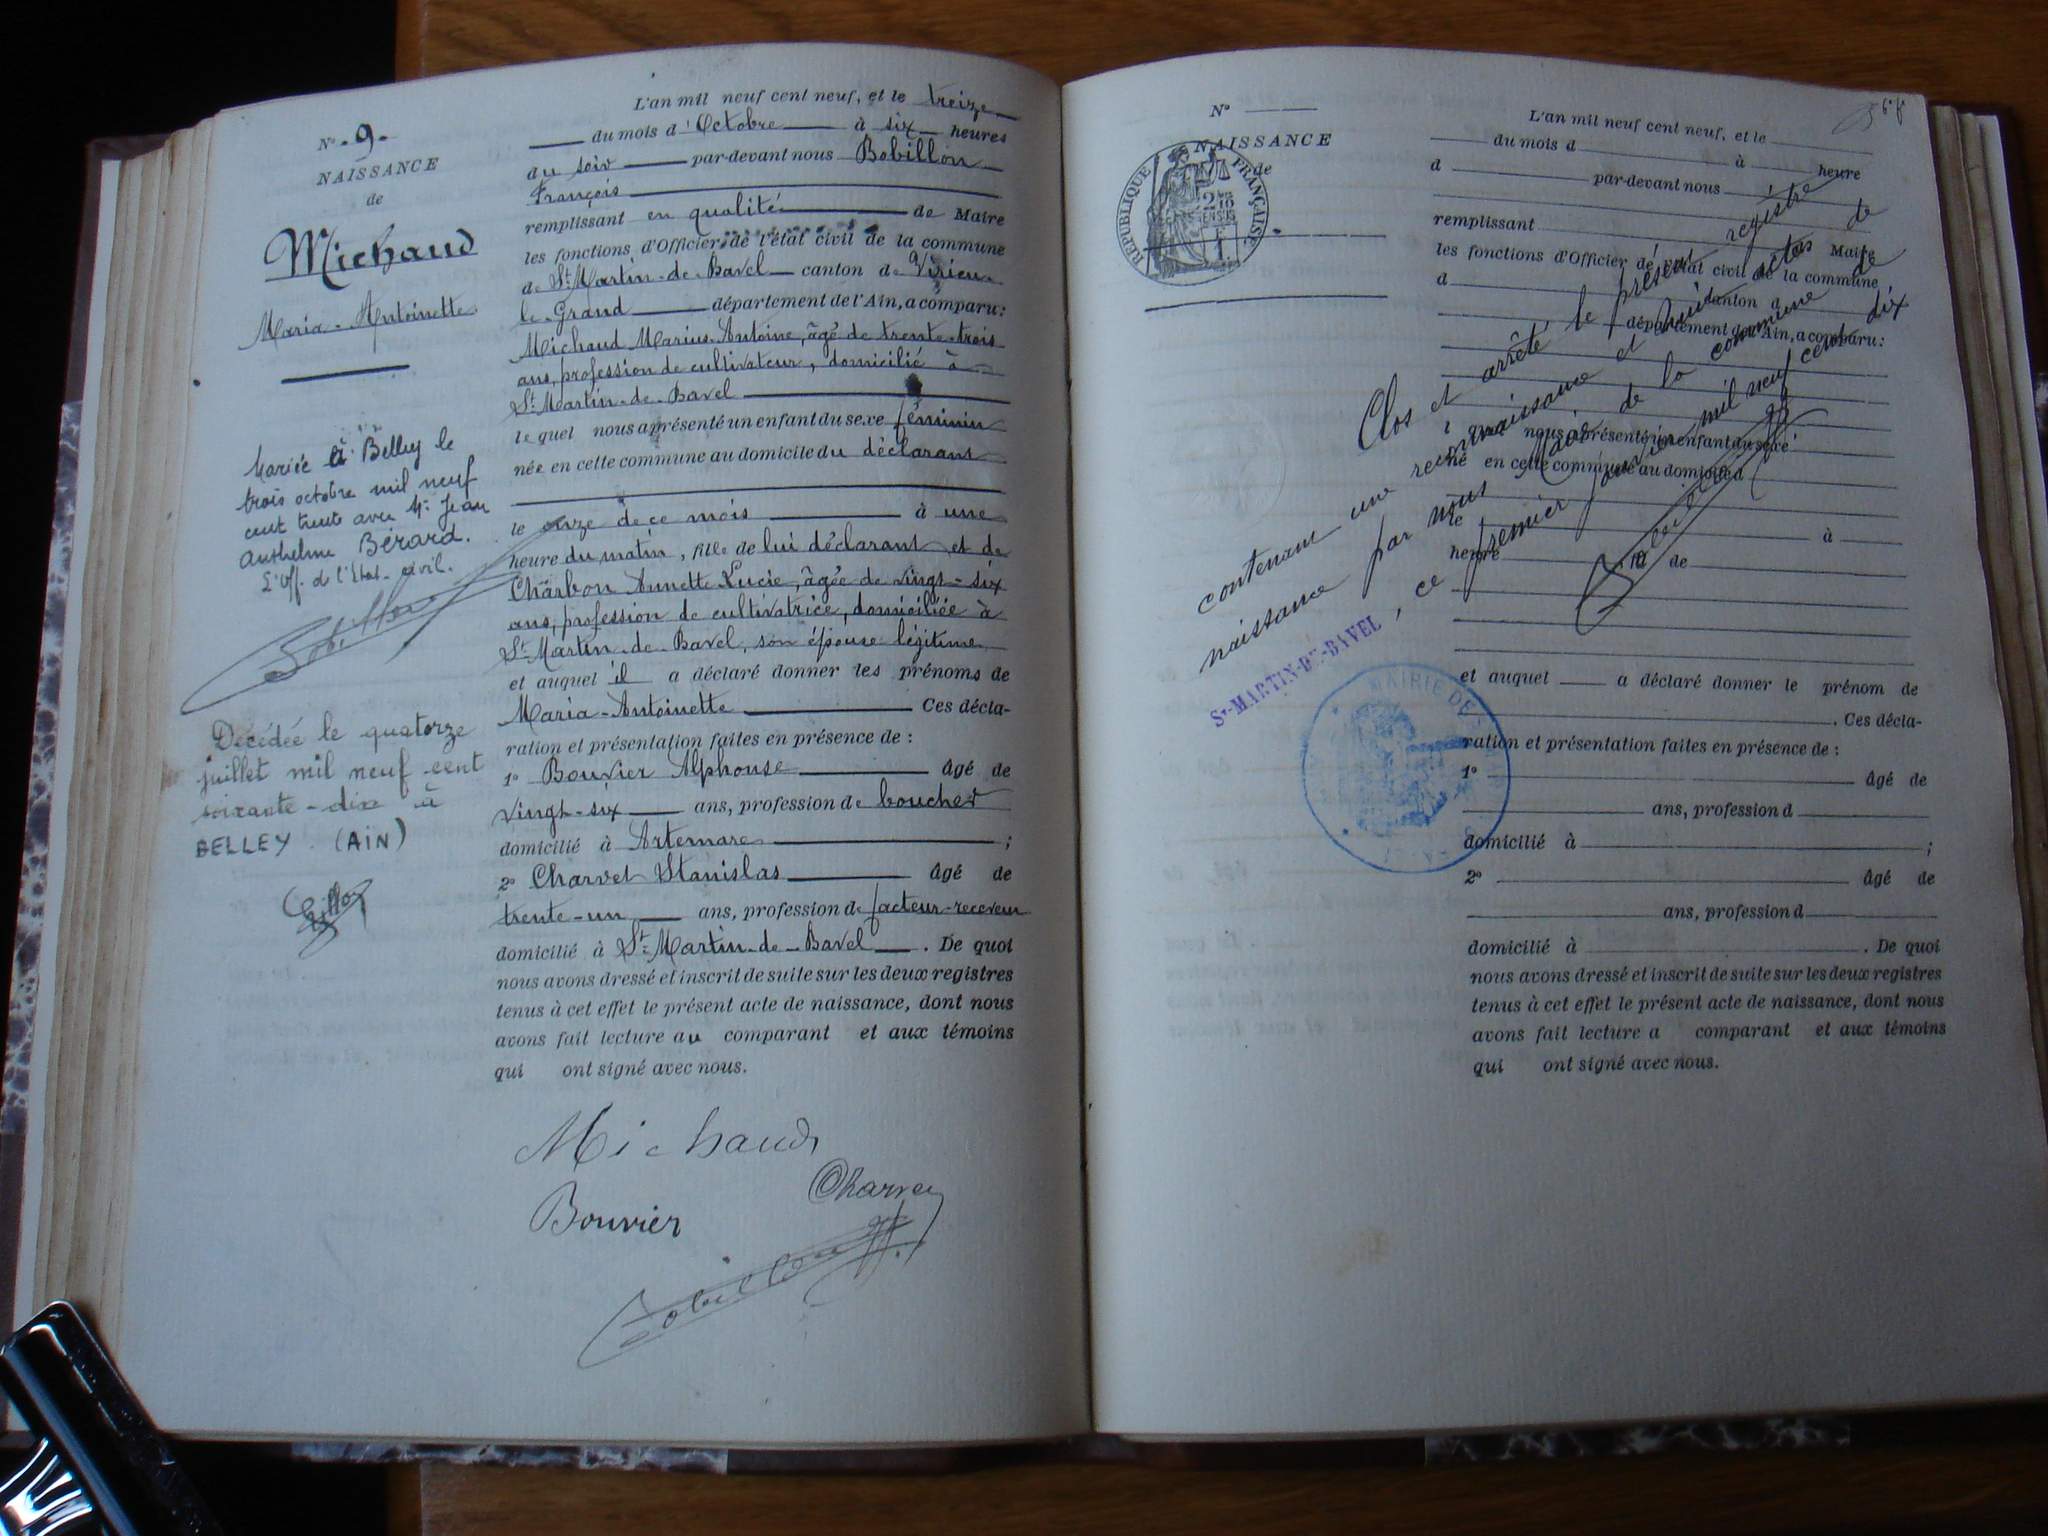 N° 9
NAISSANCE
de
Michaud
Maria-Antoinette
Mariée à Belley le
trois octobre mil neuf
cent trente avec Mr Jean
Anthelme Bérard.
L'Off. de l'Etat-civil.
Décédée le quatorze
juillet mil neuf cent
soixante-dix à
BELLEY (AIN)
L'an mil neuf cent neuf, et le treize
du mois d'Octobre à six heures
du soir par-devant nous Bobillon
François
remplissant en qualité de Maire
les fonctions d'Officier de l'état civil de la commune
de St Martin-de-Bavel canton de Virieu-
le-Grand département de l'Ain, a comparu:
Michaud Marius-Antoine, âgé de trente-trois
ans, profession de cultivateur, domicilié à
St Martin-de-Bavel
lequel nous a présenté un enfant du sexe féminin
née en cette commune au domicile du déclarant
le onze de ce mois à une
heure du matin, fille de lui déclarant et de
Charbon Annette Lucie, âgée de vingt-six
ans, profession de cultivatrice, domiciliée à
St Martin-de-Bavel, son épouse légitime
et auquel il a déclaré donner les prénoms de
Maria-Antoinette Ces décla-
ration et présentation faites en présence de :
1° Bouvier Alphonse âgé de
vingt-six ans, profession de boucher
domicilié à Artemare ;
2° Charvet Stanislas âgé de
trente-un ans, profession de facteur-receveur
domicilié à St Martin-de-Bavel . De quoi
nous avons dressé et inscrit de suite sur les deux registres
tenus à cet effet le présent acte de naissance, dont nous
avons fait lecture au comparant et aux témoins
qui ont signé avec nous.
Michaud
Charvet
Bouvier
Bobillon
N°
NAISSANCE
de
RÉPUBLIQUE FRANÇAISE
L'an mil neuf cent neuf, et le
du mois d à heure
d par-devant nous
remplissant
les fonctions d'Officier de l'état civil de la commune Maire
d canton d
département de l'Ain, a comparu:
nous a présenté un enfant du sexe
né en cette commune au domicile d
le à
heure de
et auquel a déclaré donner le prénom de
. Ces décla-
ration et présentation faites en présence de :
1° âgé de
ans, profession d
domicilié à ;
2° âgé de
ans, profession d
domicilié à . De quoi
nous avons dressé et inscrit de suite sur les deux registres
tenus à cet effet le présent acte de naissance, dont nous
avons fait lecture a comparant et aux témoins
qui ont signé avec nous.
Clos et arrêté le présent registre
contenant une reconnaissance et huit actes de
naissance par nous Maire de la commune de
ST-MARTIN-DE-BAVEL, ce premier janvier mil neuf cent dix
MAIRIE DE